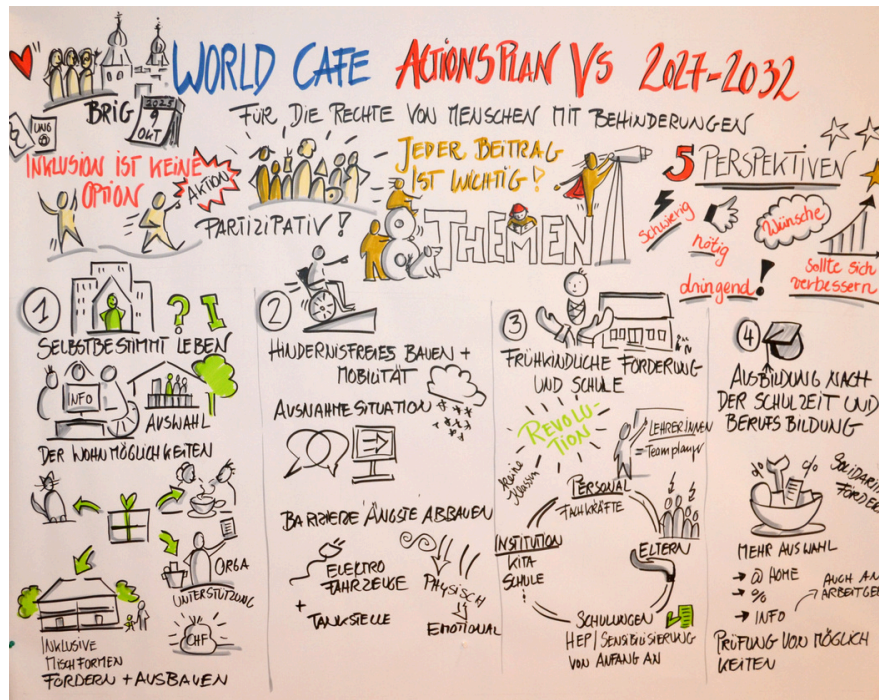 WORLD CAFE ACTIONSPLAN VS 2027-2032
BRIG
2025
9
OKT
UNO
FÜR DIE RECHTE VON MENSCHEN MIT BEHINDERUNGEN
INKLUSION IST KEINE
OPTION
AKTION
PARTIZIPATIV!
JEDER BEITRAG
IST WICHTIG!
8 THEMEN
5 PERSPEKTIVEN
Schwierig
nötig
Wünsche
dringend!
Sollte sich
verbessern
1
SELBSTBESTIMMT LEBEN
INFO
AUSWAHL
DER WOHNMÖGLICHKEITEN
ORGA
UNTERSTÜTZUNG
CHF
INKLUSIVE
MISCHFORMEN
FÖRDERN + AUSBAUEN
2
HINDERNISFREIES BAUEN +
MOBILITÄT
AUSNAHMESITUATION
BARRIERE ÄNGSTE ABBAUEN
ELEKTRO
FAHRZEUGE
+
TANKSTELLE
PHYSISCH
EMOTIONAL
3
FRÜHKINDLICHE FÖRDERUNG
UND SCHULE
REVOLU-
TION
LEHRERINNEN
= Teamplayer
kleine
Klassen
PERSONAL
FACHKRÄFTE
INSTITUTION
KITA
SCHULE
ELTERN
SCHULUNGEN
HEP/SENSIBILISIERUNG
VON ANFANG AN
4
AUSBILDUNG NACH
DER SCHULZEIT UND
BERUFSBILDUNG
%
MEHR AUSWAHL
→ @ HOME
→ %
→ INFO
AUCH AN
PRÜFUNG VON MÖGLICH
KEITEN